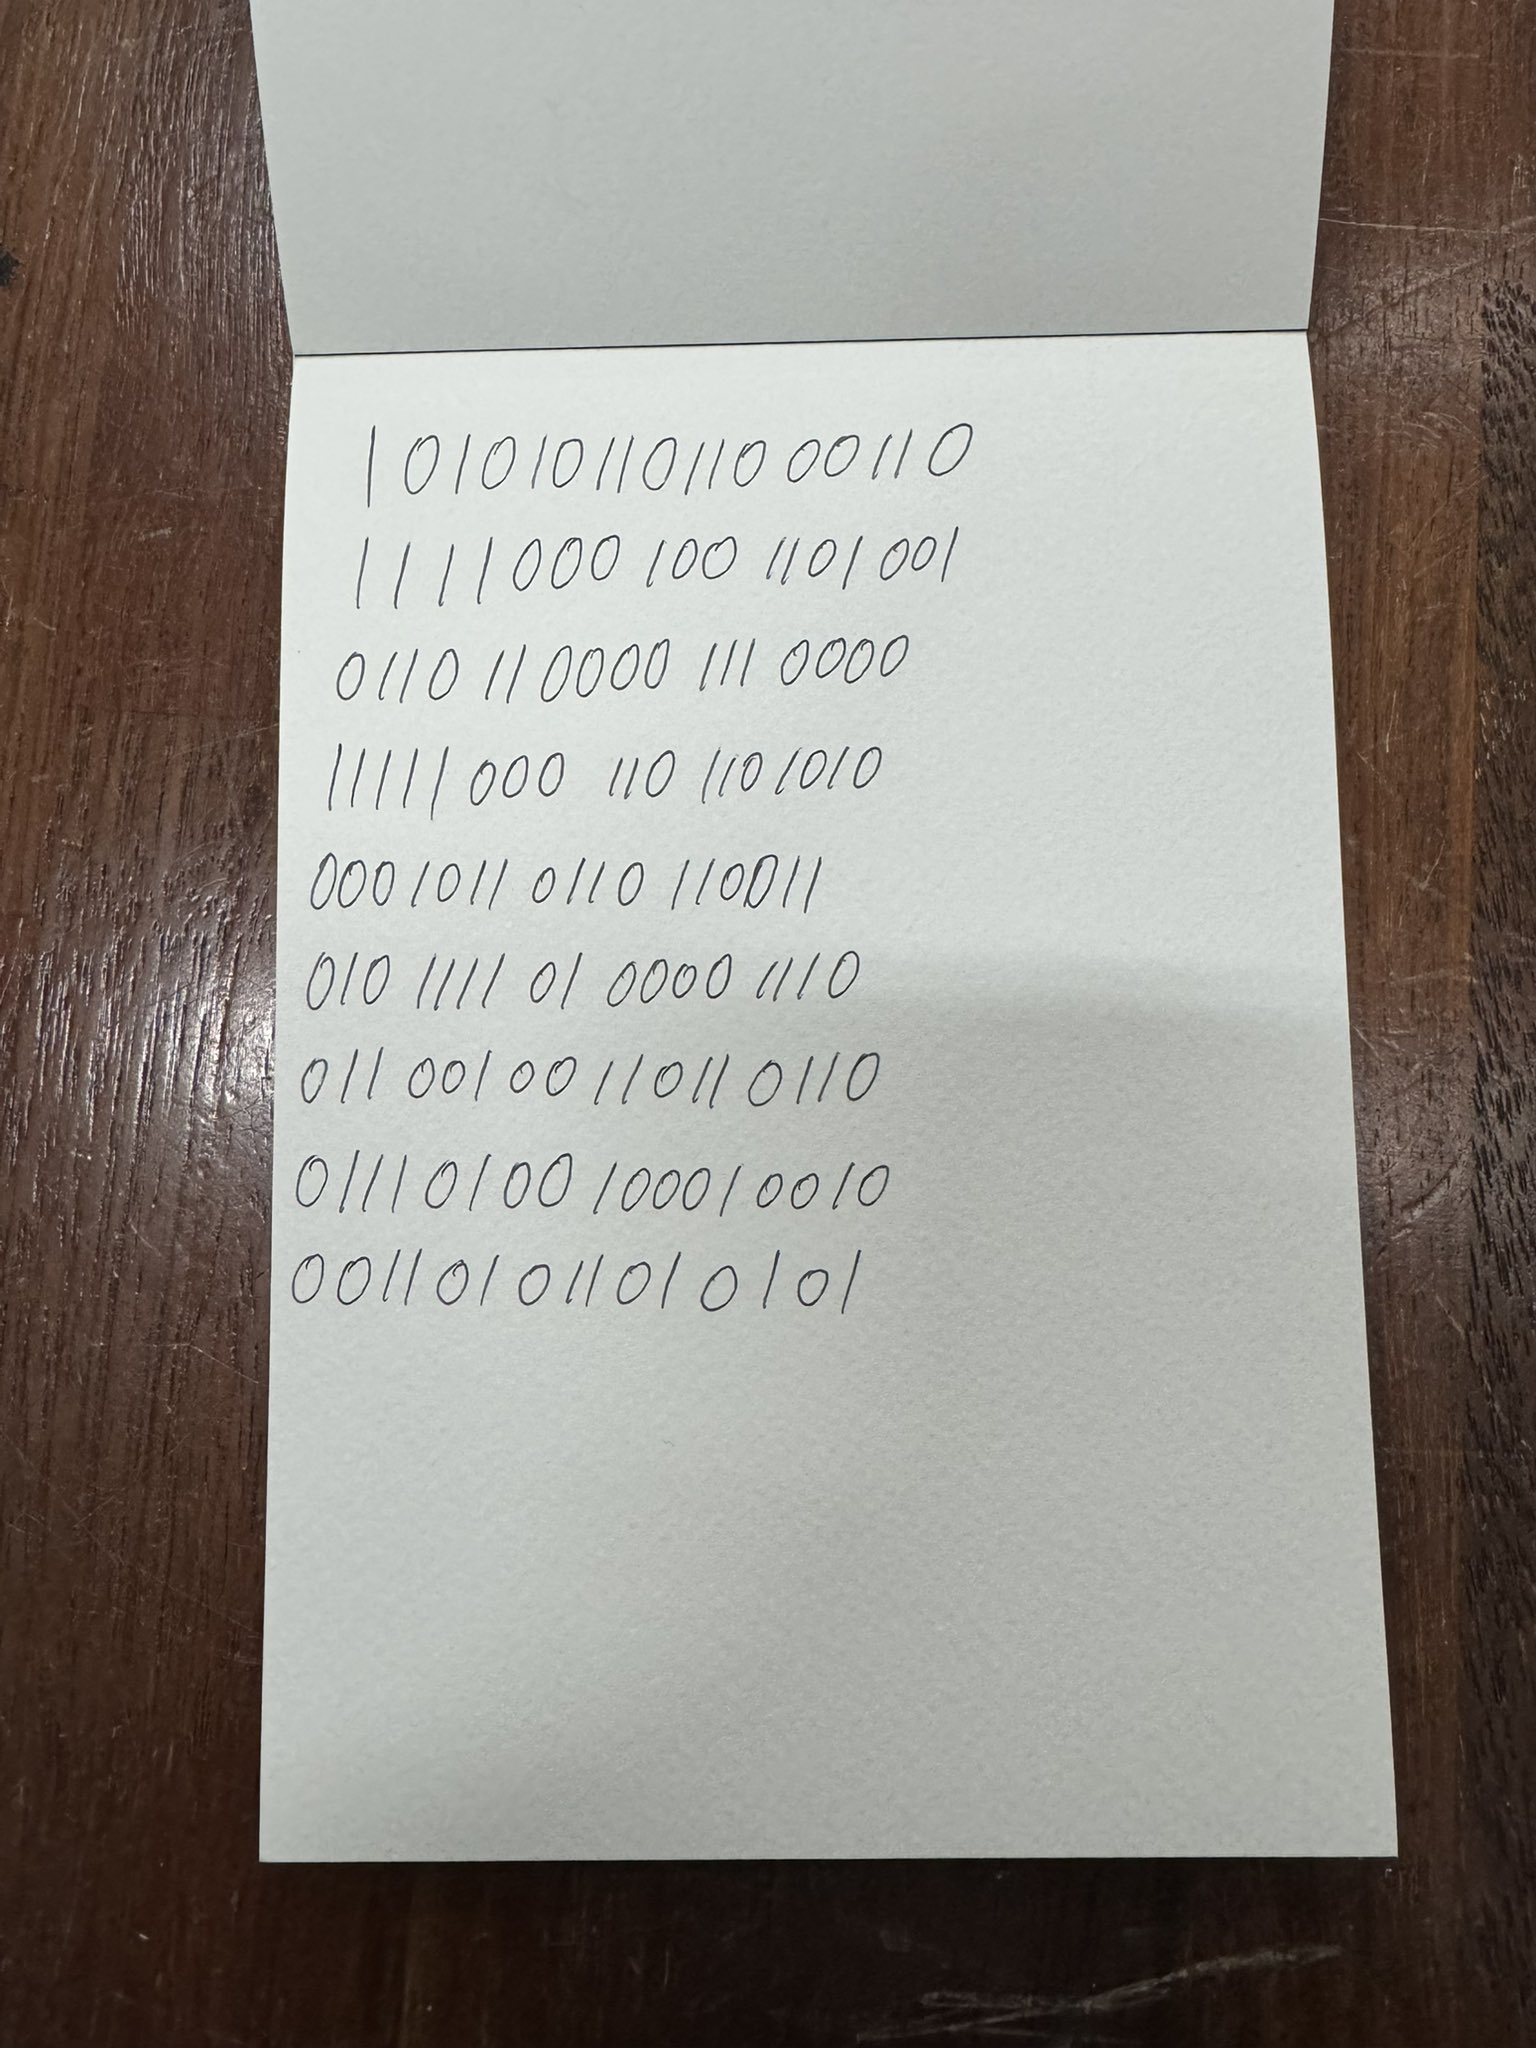 1010101101100 00110
1111000 100 1101 001
0110 11 0000 111 0000
11111 000 110 110 1010
0001011 0110 110011
010 1111 01 0000 1110
011 001 00 11011 0110
0111 0100 10001 0010
0011 01 01101 0 1 01